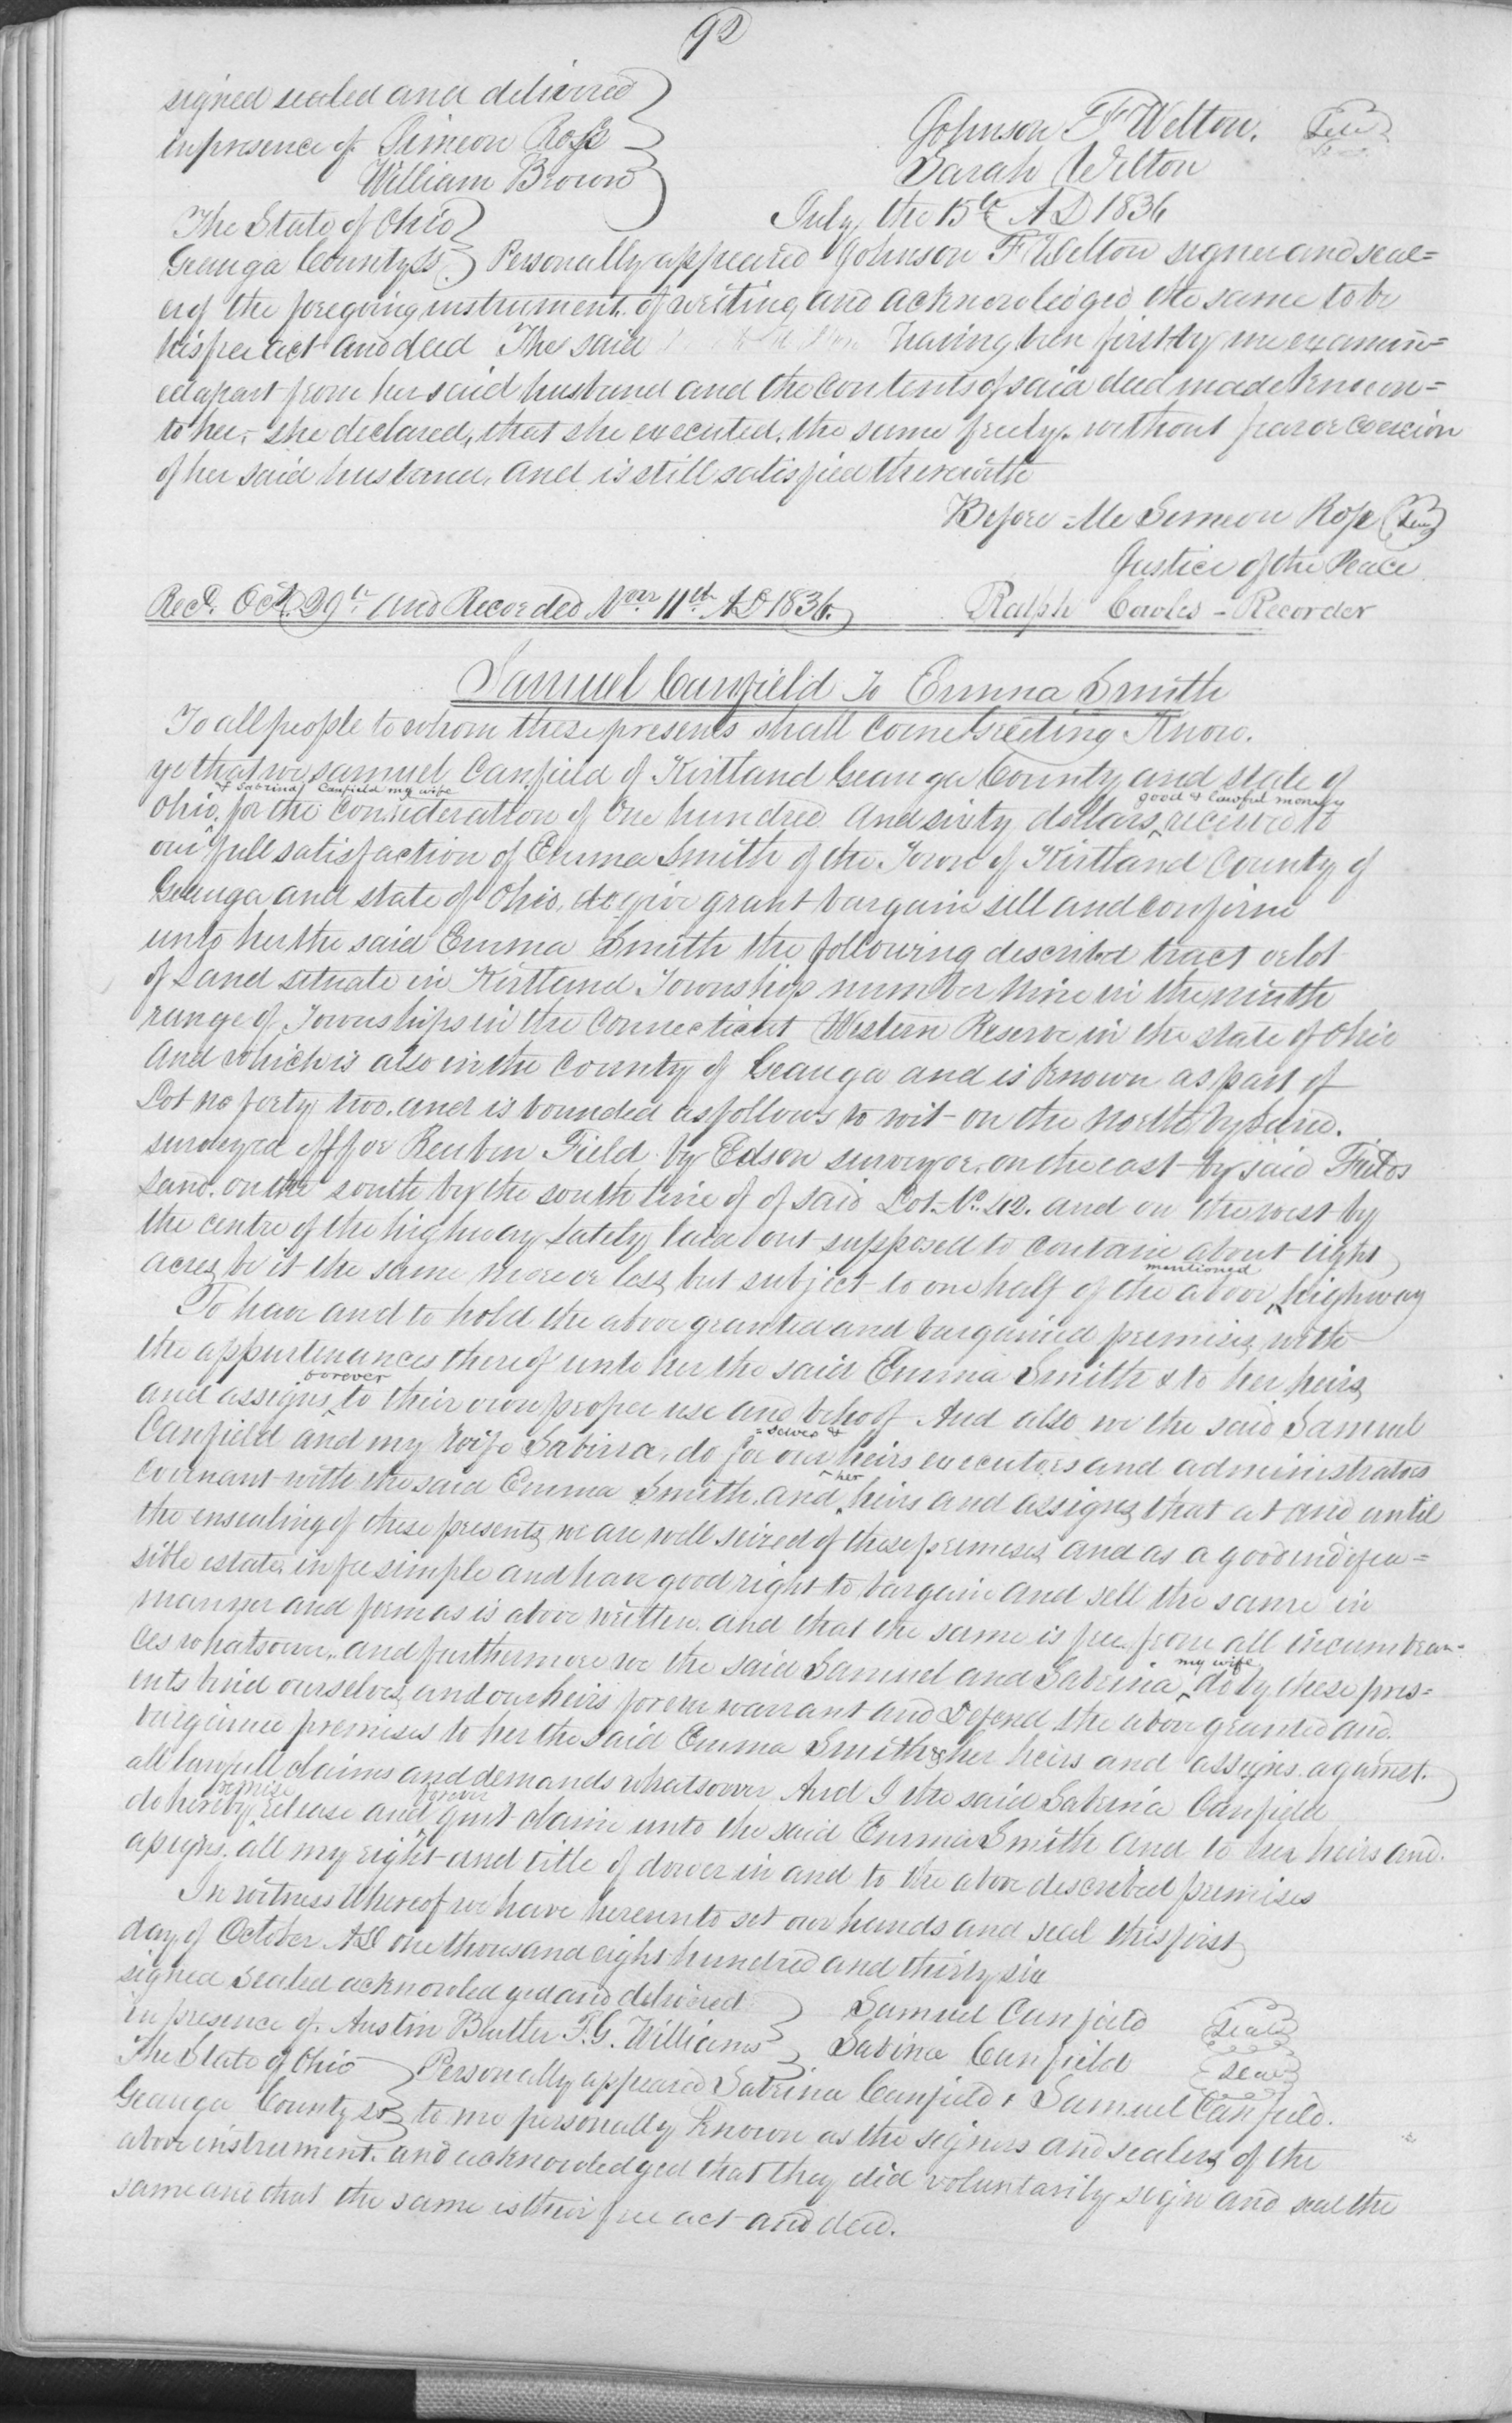 92
signed sealed and delivered
in presence of Simeon Rose
William Brown
Johnson F Welton. Seal
Sarah Welton
The State of Ohio July the 15th AD 1836
Geauga County Ss Personally appeared Johnson F Welton signer and seal=
er of the foregoing instrument of writing and acknowledged the same to be
his free act and deed The said having been first by me examin=
ed apart from her said husband and the contents of said deed made known=
to her, she declared, that she executed, the same freely, without fear or coercion
of her said husband, and is still satisfied therewith
Before Me Simeon Rose Seal
Justice of the Peace
Recd. Oct. 29th. and Recorded Nover 11th AD 1836. Ralph Cowles - Recorder
Samuel Canfield To Emma Smith
To all people to whom these presents shall come Greeting Know.
ye that we samuel Canfield of Kirtland Geauga County and state of
& Sabrina Canfield my wife good & lawful money
Ohio, for the consideration of One hundred and sixty dollars, received to
our full satisfaction of Emma Smith of the Town of Kirtland County of
Geauga and state of Ohio, do give grant bargain sell and confirm
unto her the said Emma Smith the following described tract or lot
of Land situate in Kirtland Township number Nine in the ninth
range of Townships in the Connecticut Western Reserve in the state of Ohio
and which is also in the County of Geauga and is known as part of
Lot no forty two. and is bounded as follows to wit - on the North by Land.
surveyed off for Reuben Field by Edson surveyor, on the east by said Fields
Land. on the south by the south line of of said Lot No. 42. and on the west by
the centre of the highway lately laid out supposed to contain about eight
acres be it the same more or less but subject to one half of the above mentioned highway
To have and to hold the above granted and bargained premises with
the appurtenances thereof unto her the said Emma Smith & to her heirs
and assigns forever to their own proper use and behoof And also we the said Samuel
Canfield and my wife Sabrina, do for our =selves & heirs executors and administrators
covenant with the said Emma Smith. and her heirs and assigns that at and until
the ensealing of these presents we are well seized of these premises and as a good indefea=
sible estate, in fee simple and have good right to bargain and sell the same in
manner and form as is above written. and that the same is free from all incumbran=
ces whatsoever. and furthermore we the said Samuel and Sabrina my wife do by these pres=
ents bind ourselves and our heirs forever warrant and Defend the above granted and.
bargained premises to her the said Emma Smith & her heirs and assigns. against.
all lawfull claims and demands whatsoever And I the said Sabrina Canfield
do hereby remise release and forever quit claim unto the said Emma Smith and to her heirs and.
assigns. all my right and title of dower in and to the above described premises
In witness Whereof we have hereunto set our hands and seal this first
day of October AD one thousand eight hundred and thirty six
signed Sealed acknowledged and delivered Samuel Canfield seal
in presence of. Austin Butler F.G. Williams Sabina Canfield seal
The State of Ohio Personally appeared Sabrina Canfield & Samuel Canfield.
Geauga County ss to me personally known as the signers and sealers of the
above instrument. and acknowledged that they did voluntarily sign and seal the
same and that the same is their free act and deed.